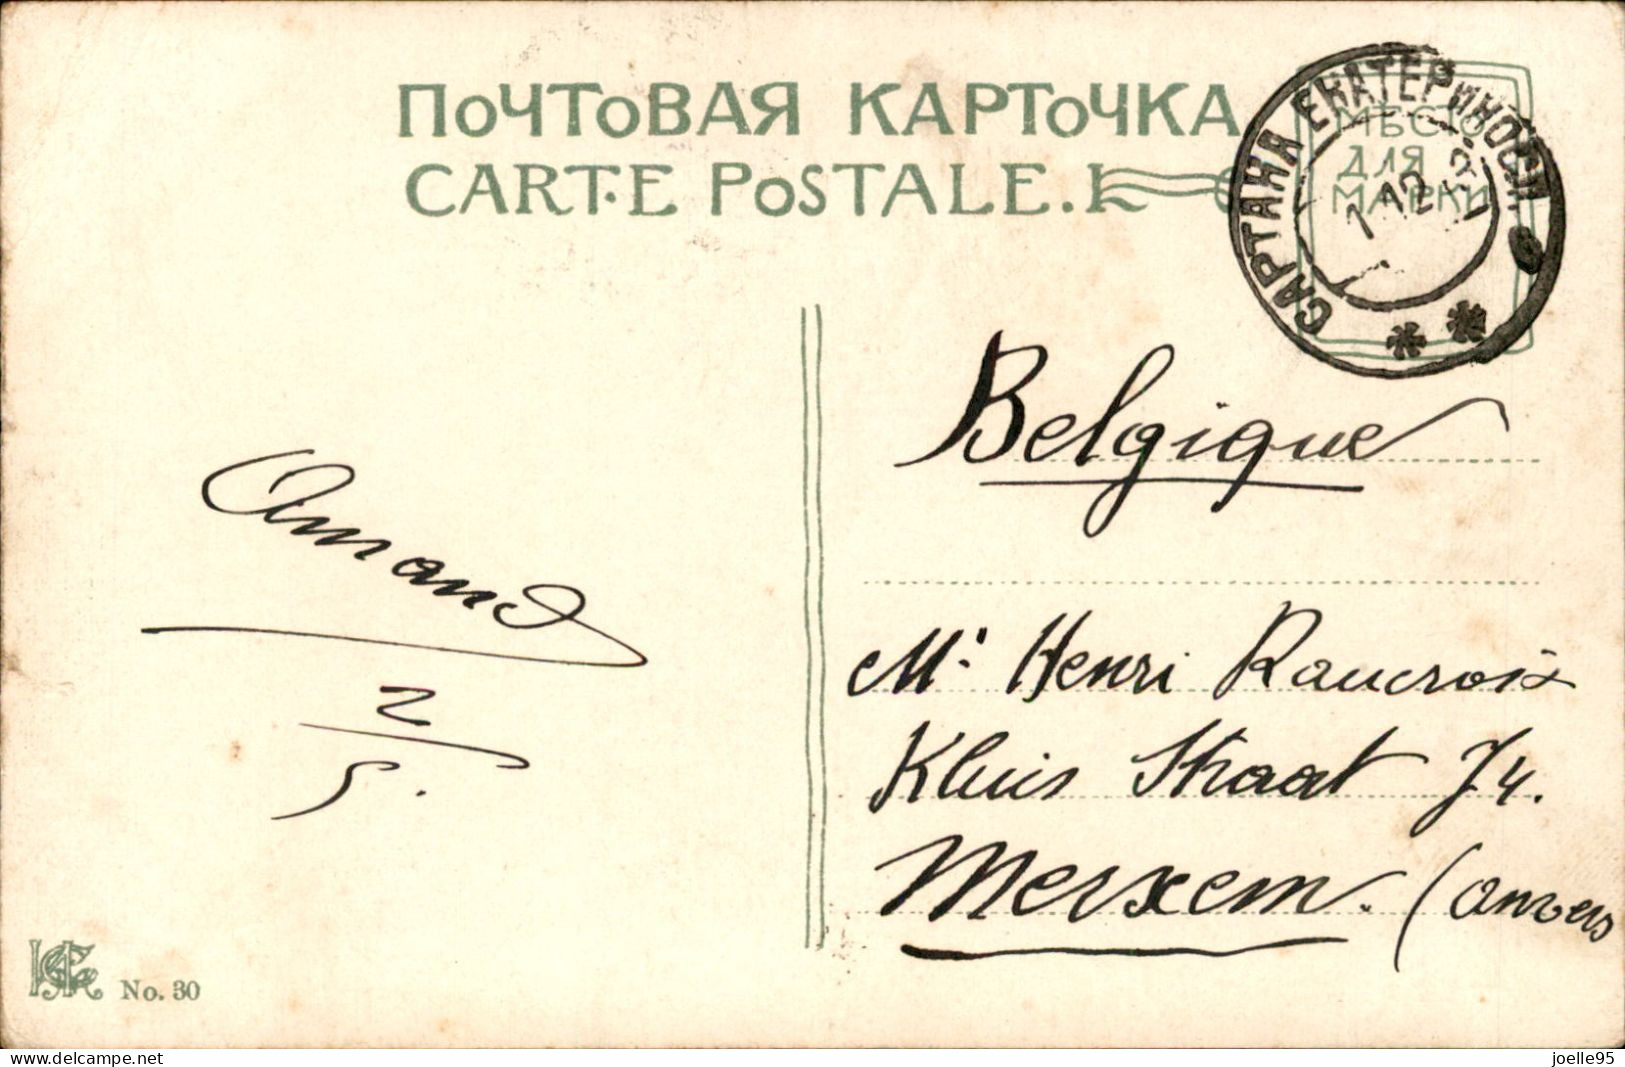 ПОЧТОВАЯ КАРТОЧКА
CARTE POSTALE.
МѢСТО
ДЛЯ
МАРКИ
САРТАНА ЕКАТЕРИНОСЛ.
7 12
Belgique
Amand
2/5.
Mr Henri Raucroix
Kluis Straat 74.
Merxem. (Anvers
No. 30
www.delcampe.net
joelle95